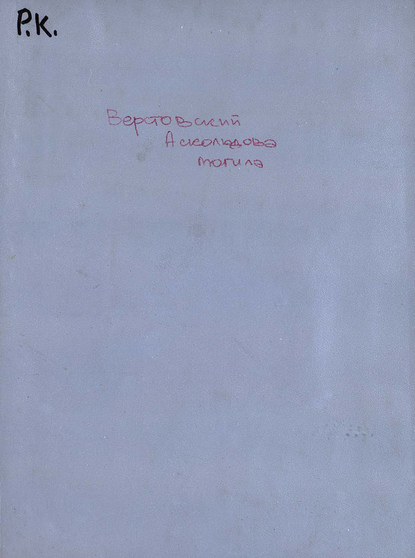 Р.К.
Верстовский
Аскольдова
могила